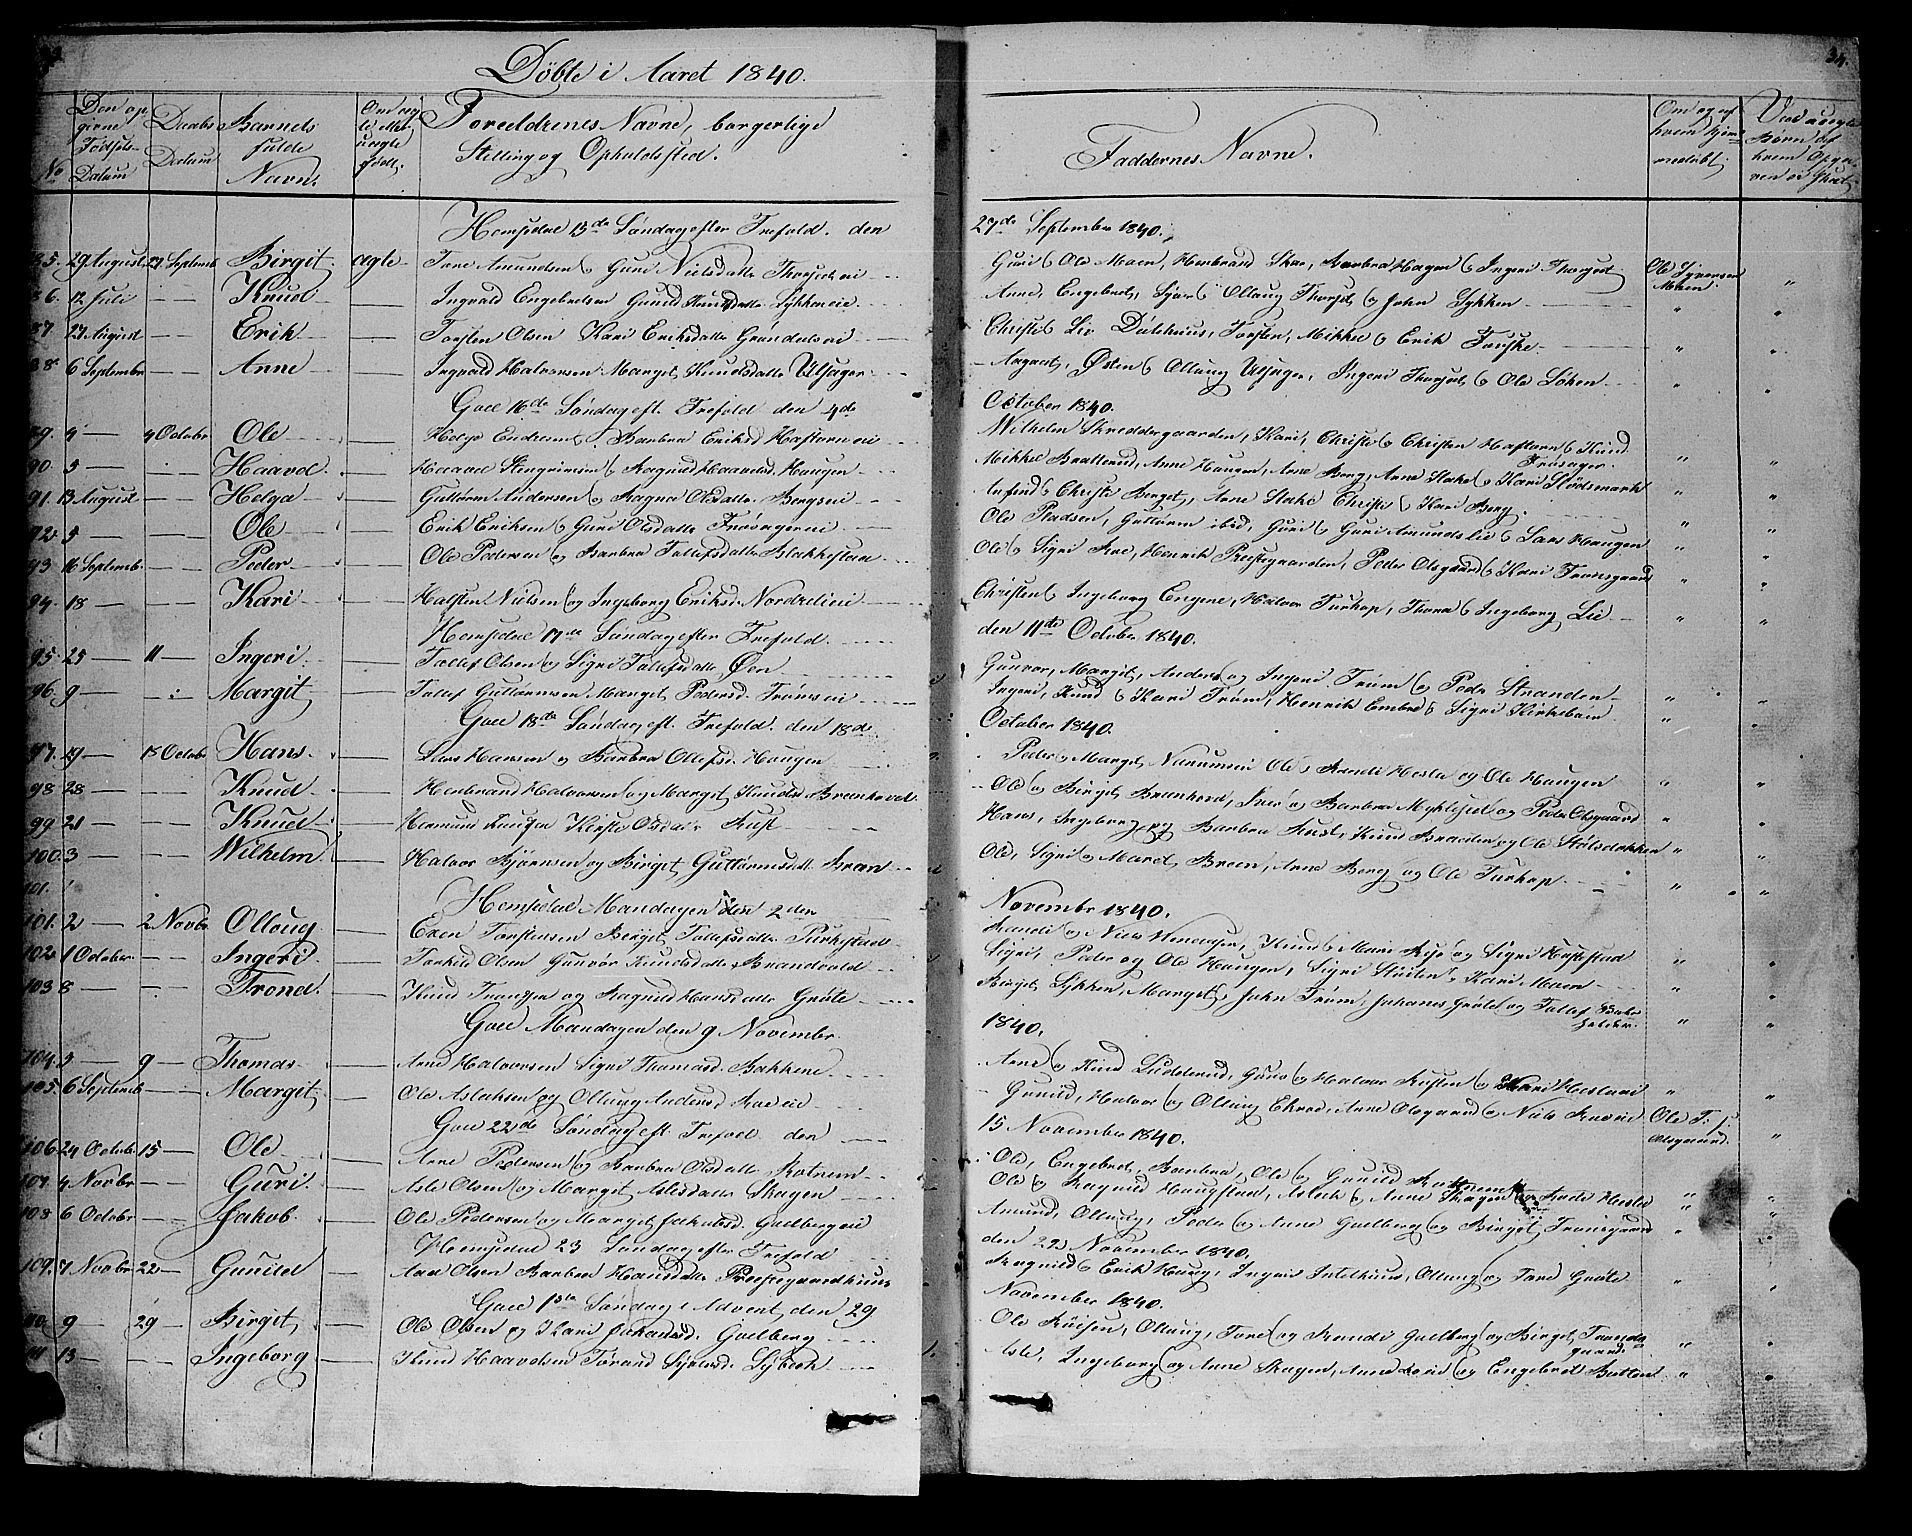 34.
Döbte i Aaret 1840.
No
Den op
givne
Fødsels
Datum
Daabs
Datum
Barnets
fulde
Navn.
Om æg
te eller
uægte
født.
Forældrenes Navne, borgerlige
Stilling og Opholdssted.
Faddernes Navne.
Om og af
hvem hjem
medøbt.
Ved uægte
Børn af
hvem Opga
ven er skeet
Hemsedal 15de Søndag efter Trefold. den
27de September 1840.
85. 29 August 27 Septemb Birgit ægte Tore Amundsen Guri Nielsdatter Thorset eie
Guri Ole Moen, Herbrand Skar, Barbra Hagen Ingeri Thorset Ole Syversen
Moen.
86. 12 Juli Knud Ingvald Engebretsen Gunild Knudsdatter Lykken eie
Anne, Engebret, Syver Ollaug Thorset og John Lykken
87. 27 August Erik Torsten Olsen Kari Eriksdatter Grøndalseie
Christi Liv Dølehuus, Torsten, Mikkel Erik Torske
88. 6 Septembr Anne Ingvald Halvorsen Margit Knudsdatter Ulsager
Aagaat, Østen Ollaug Ulsager, Ingeri Thorset Ole Løken
Goel 16de Søndag eft. Trefold den 4de
October 1840.
89. 4 4 Octobr Ole Helge Endresen Barbra Eriksd. Haftorn eie
Wilhelm Skreddergaarden, Kari, Christi Christen Haftorn Knud
Trøsager.
90. 5 Haavel. Haavel Stengrimsen Ragnild Haavelsd. Haugen
Mikkel Bratterud, Anne Haugen, Arne Berg, Anne Stake Kari Flødsmark
91. 13 August Helga Guttorm Andersen Ragna Olsdatter Bergseie
Anfind Christi Berget, Arne Stake Christi Kari Berg
92. 5 Ole Erik Eriksen Guri Olsdatter Trøsager eie
Ole Pladsen, Guttorm ibid, Guri Guri Amunds Lie Lars Haugen
93. 16 Septemb. Peder Ole Pedersen og Barbra Tollefsdatter Blakkestad
Ole Sigri Rue, Henrik Præstegaarden, Peder Olsgaard Kari Tronsgaard
94. 18 Kari Halsten Nielsen og Ingeborg Eriksd. Nordrelieie
Christen Ingeborg Engene, Halvor Turkop, Thora Ingeborg Lie
Hemsedal 17de Søndag efter Trefold.
den 11de October 1840.
95. 25 11 Ingeri. Tollef Olsen og Sigri Tollefsdatter Øen
Gunvor, Margit, Anders og Ingeri Trøm og Peder Stranden
96. 9 Margit Tollef Guttormsen Margit Pedersd. Trømseie
Ingeri, Knud Kari Trøm, Henrik Embret Sigri Kirkebøen
Goel 18de Søndag eft. Trefold. den 18de
October 1840.
97. 19 18 Octobr Hans. Lars Hansen og Barbra Ollefsd. Haugen
Peder Margit Narumseie Ole Randi Hesla og Ole Haugen
98. 28 Knud. Herbrand Halvorsen og Margit Knudsd. Brenhovd
Ole og Birgit Brenhovd, Iver og Barbra Myklesæt og Peder Olsgaard
99. 21 Knud Hermund Kirsti Olsdatter Rust
Hans, Ingeborg og Barbra Rust, Knud Braaten og Ole Stølsdokken
100. 3 Wilhelm. Halvor Bjørnsen og Birgit Guttormsdatter Breen
Ole, Sigri og Marit Breen, Arne Berg og Ole Turkop
101.
Hemsedal Mandagen den 2den
Novembr 1840.
101. 2 2 Novbr. Ollaug Even Torstensen Birgit Tollefsdatter
Randi og Niels Knud Mari og Sigri
102. 1 October Ingeri. Torkild Olsen Gunvor Knudsdatter Brandvold
Sigri, Peder og Ole Haugen, Sigri Kari Moen
103. 8 Trond. Knud Trondsen og Ragnild Hansdatter Grøte
Birgit Lykken, Margit, John Trøm, Johanes Grøte og Tollef
Goel Mandagen den 9 Novembr
1840.
104. 3 9 Thomas Arne Halvorsen Sigri Thomasd. Bakkene
Arne og Knud Ludderud, Guro og Halvor Rusten og Kari Heslaeie
105. 6 Septemb Margit Ole Aslaksen og Ollaug Andersd. Raeeie
Gunild, Halvor og Ollaug Ekroe, Anne Olsgaard og Niels Ole T. S.
Olsgaard.
Goel 22de Søndag eft. Trefoel. den
15 November 1840.
106. 24 Octob. 15 Ole. Arne Pedersen og Barbra Olsdatter Rotneim
Ole, Engebret, Barbra, Ole og Gunild Rotneim
107. 4 Novbr Guri. Asle Olsen og Margit Aslesdatter Skagen
Ole og Ragnild Haugstad, Aslak og Anne Skagen og Hesla
108. 6 Octobr Jakob. Ole Pedersen og Margit Jakobsd. Goelberg eie
Amund, Ollaug, Peder og Anne Goelberg og Birgit Tronsgaard
Hemsedal 23 Søndag efter Trefold
den 22 November 1840.
109. 7 Novbr 22 Gunild Olsen Barbra Hansdatter Præstegaardhuus
Ragnild Erik Haug, Ingeri Ollaug og Tore Grøte
Goel 1ste Søndag i Advent den 29
November 1840.
110. 9 29 Birgit Ole Olsen og Kari Johansd. Goelberg
Ole Ollaug, Tore og Randi Goelberg og Birgit Trons
gaard.
111. 13 Ingeborg Knud Haavelsen Torand
Asle, Ingeborg og Arne Skagen, og Engebret